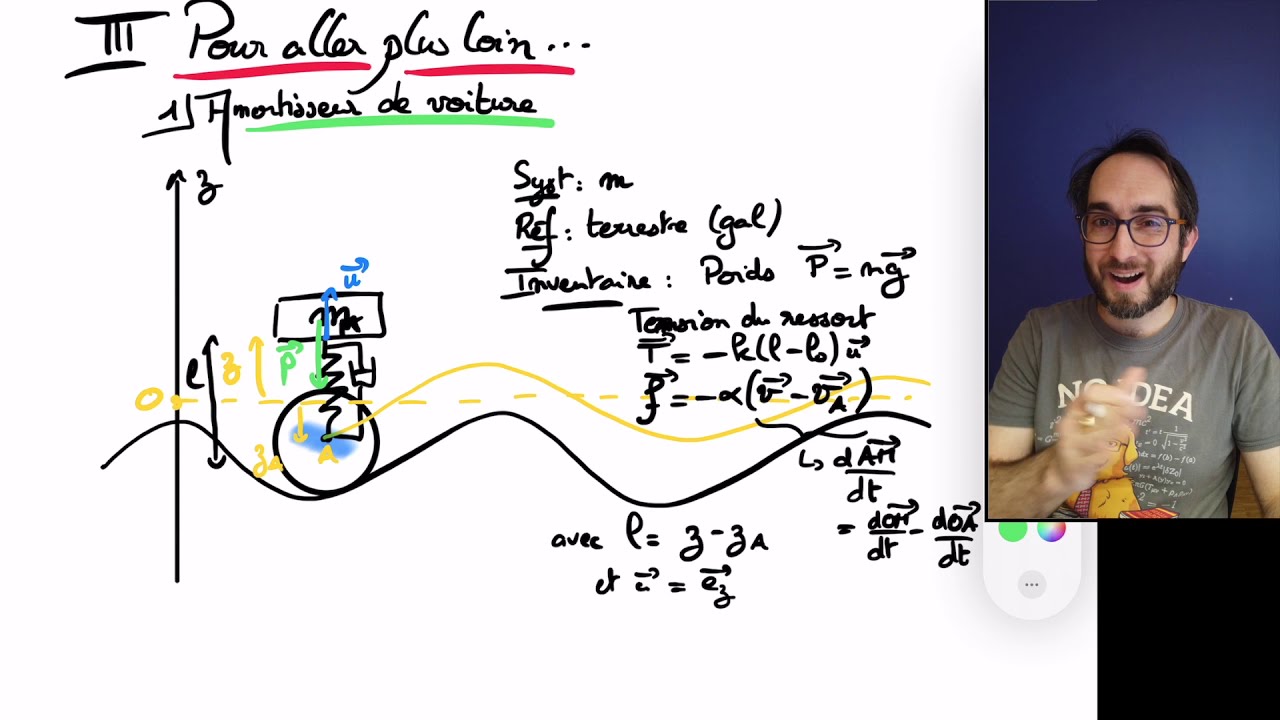 III Pour aller plus loin...
1) Amortisseur de voiture
z
Syst : m
Réf : terrestre (gal)
Inventaire : Poids P⃗ = mg⃗
Tension du ressort
T⃗ = -k(l-l₀)u⃗
f⃗ = -α(v⃗ - v⃗_A)
↳ dAM⃗/dt
= dOM⃗/dt - dOA⃗/dt
avec l = z - z_A
et u⃗ = e⃗_z
u⃗
m
l
z
P⃗
O
z_A
A
NO IDEA